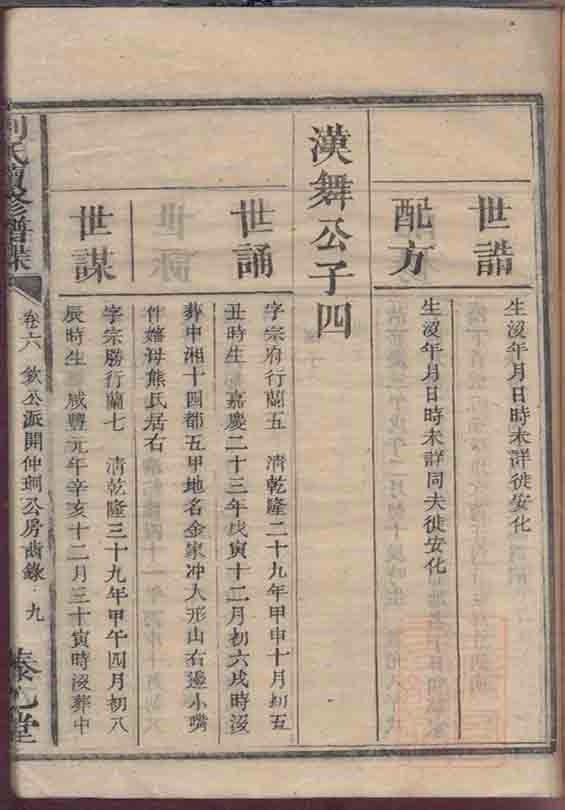 世誥
生沒年月日時未詳徙安化
配方
生沒年月日時未詳同夫徙安化
漢舞公子四
世誦
字宗府行蘭五 清乾隆二十九年甲申十月初五
丑時生 嘉慶二十三年戊寅十二月初六戌時沒
葬中湘十四都五甲地名金家冲人形山右邊小嘴
件嬸母熊氏居右
世謀
字宗勝行蘭七 清乾隆三十九年甲午四月初八
辰時生 咸豐元年辛亥十二月三十寅時沒葬中
劉氏續修譜牒
卷六 欽公派開仲珂公房齒錄 九
堂